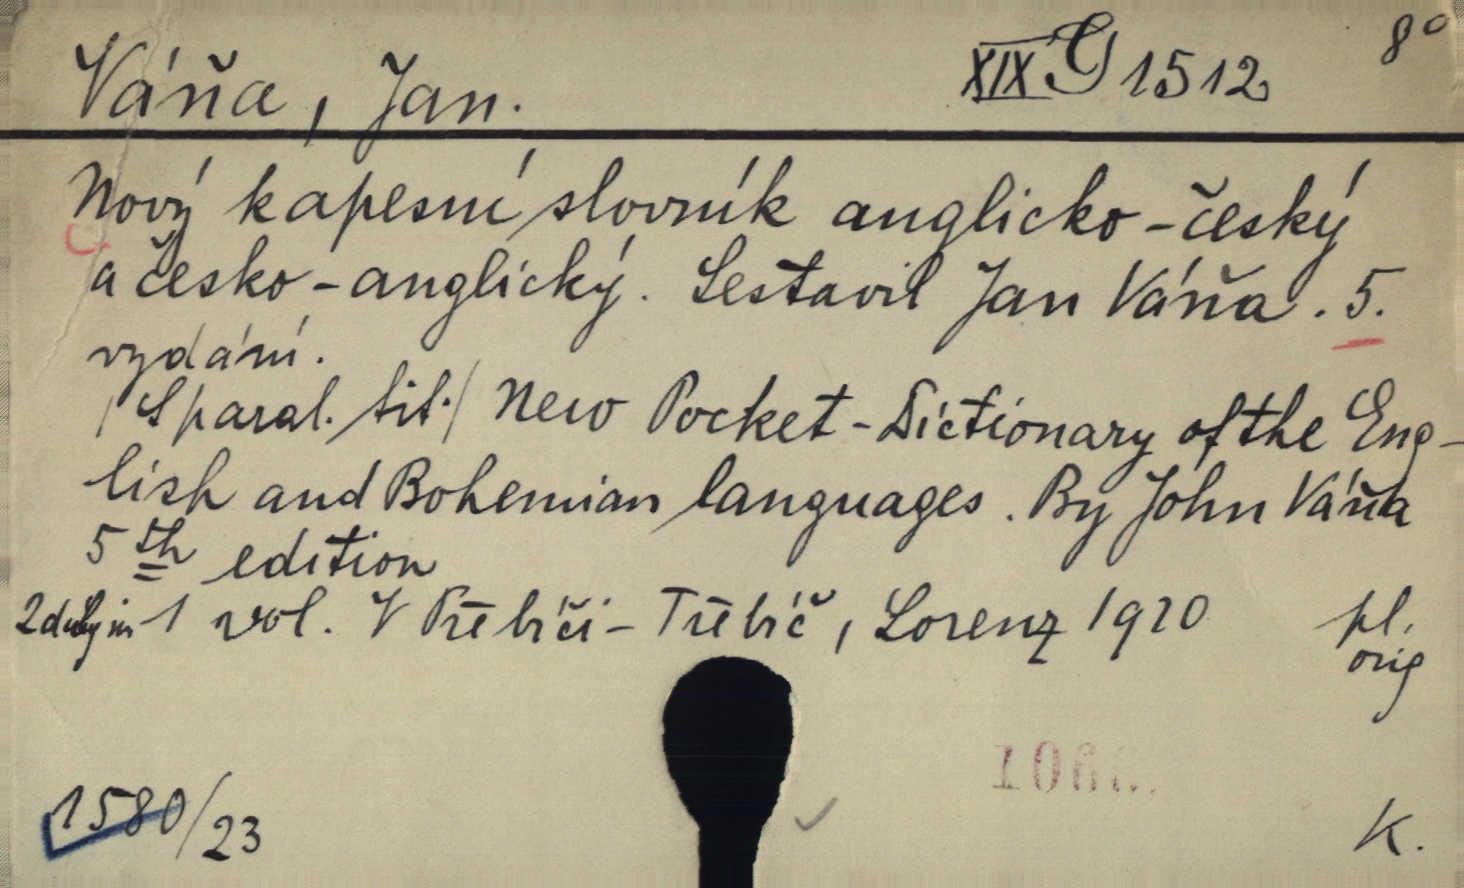 Váňa, Jan.
XIX G 1512
8°
Nový kapesní slovník anglicko-český
a česko-anglický. Sestavil Jan Váňa. 5.
vydání.
/S paral. tit./ New Pocket-Dictionary of the Eng-
lish and Bohemian languages. By John Váňa
5th edition
1 vol. V Třebíči - Třebíč, Lorenz 1920
pl.
orig
1580/23
K.